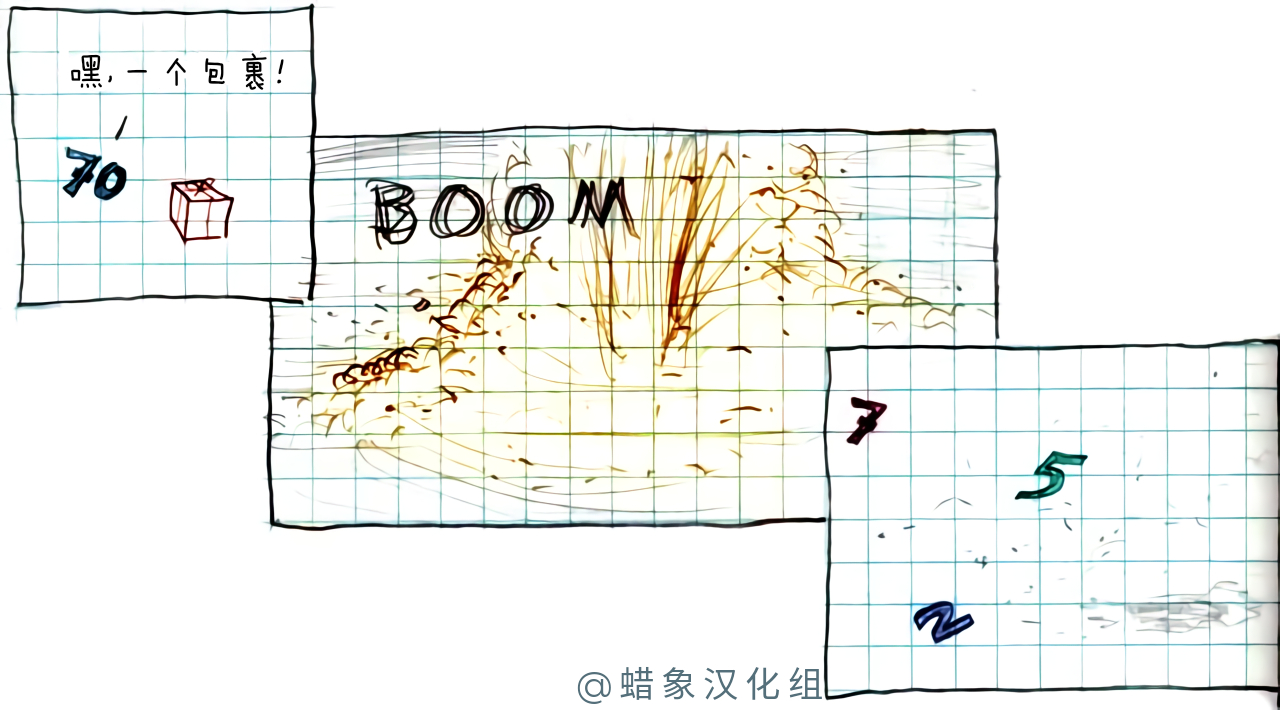 嘿,一个包裹!
70
BOOM
7
5
2
@蜡象汉化组